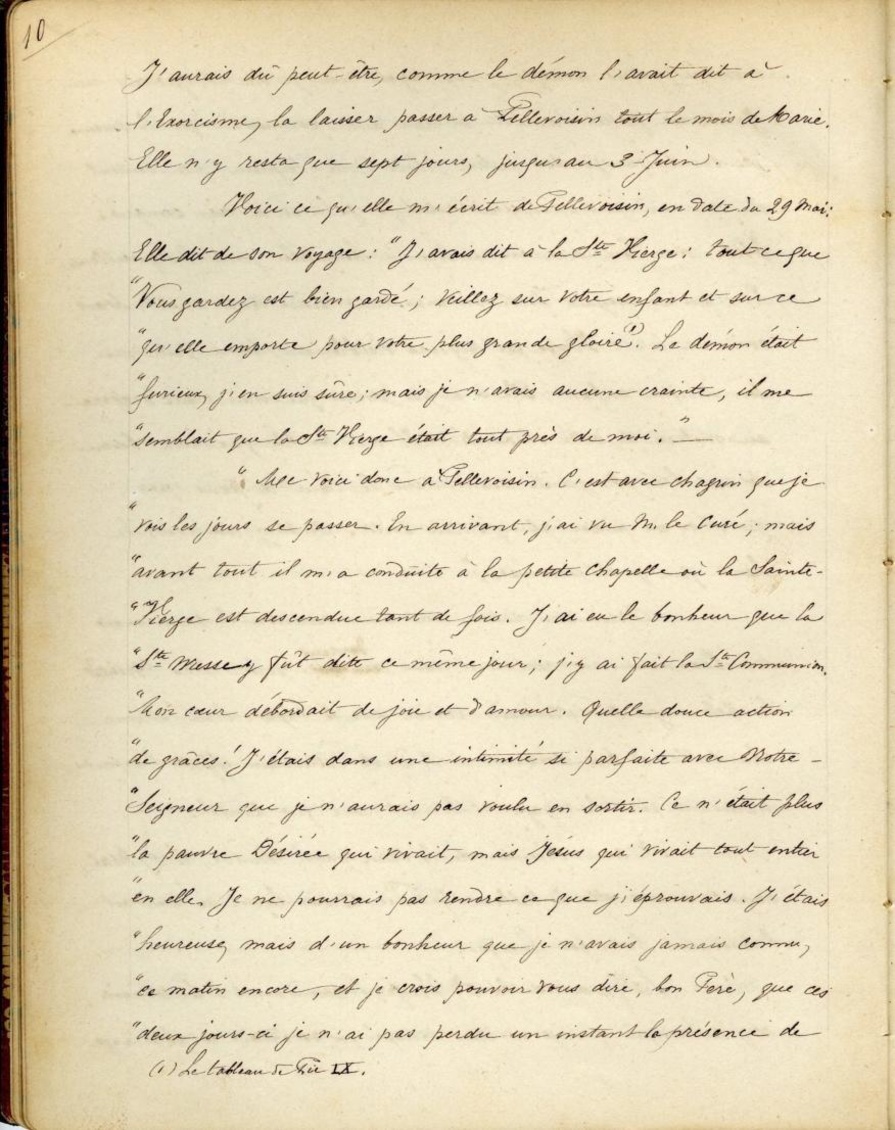 10
J'aurais dû peut-être, comme le démon l'avait dit à
l'Exorcisme, la laisser passer à Pellevoisin tout le mois de Marie.
Elle n'y resta que sept jours, jusqu'au 3 Juin.
Voici ce qu'elle m'écrit de Pellevoisin, en date du 29 Mai:
Elle dit de son voyage : "J'avais dit à la Ste Vierge : tout ce que
"Vous gardez est bien gardé ; veillez sur votre enfant et sur ce
"qu'elle emporte pour votre plus grande gloire (1). Le démon était
"furieux, j'en suis sûre ; mais je n'avais aucune crainte, il me
"semblait que la Ste Vierge était tout près de moi." —
"Me voici donc à Pellevoisin. C'est avec chagrin que je
"vois les jours se passer. En arrivant, j'ai vu M. le Curé ; mais
"avant tout il m'a conduite à la petite chapelle où la Sainte-
"Vierge est descendue tant de fois. J'ai eu le bonheur que la
"Ste Messe y fût dite ce même jour ; j'y ai fait la Ste Communion.
"Mon cœur débordait de joie et d'amour. Quelle douce action
"de grâces! J'étais dans une intimité si parfaite avec Notre-
"Seigneur que je n'aurais pas voulu en sortir. Ce n'était plus
"la pauvre Désirée qui vivait, mais Jésus qui vivait tout entier
"en elle. Je ne pourrais pas rendre ce que j'éprouvais. J'étais
"heureuse, mais d'un bonheur que je n'avais jamais connu,
"ce matin encore, et je crois pouvoir vous dire, bon Père, que ces
"deux jours-ci je n'ai pas perdu un instant la présence de
(1) Le tableau de Pie IX.